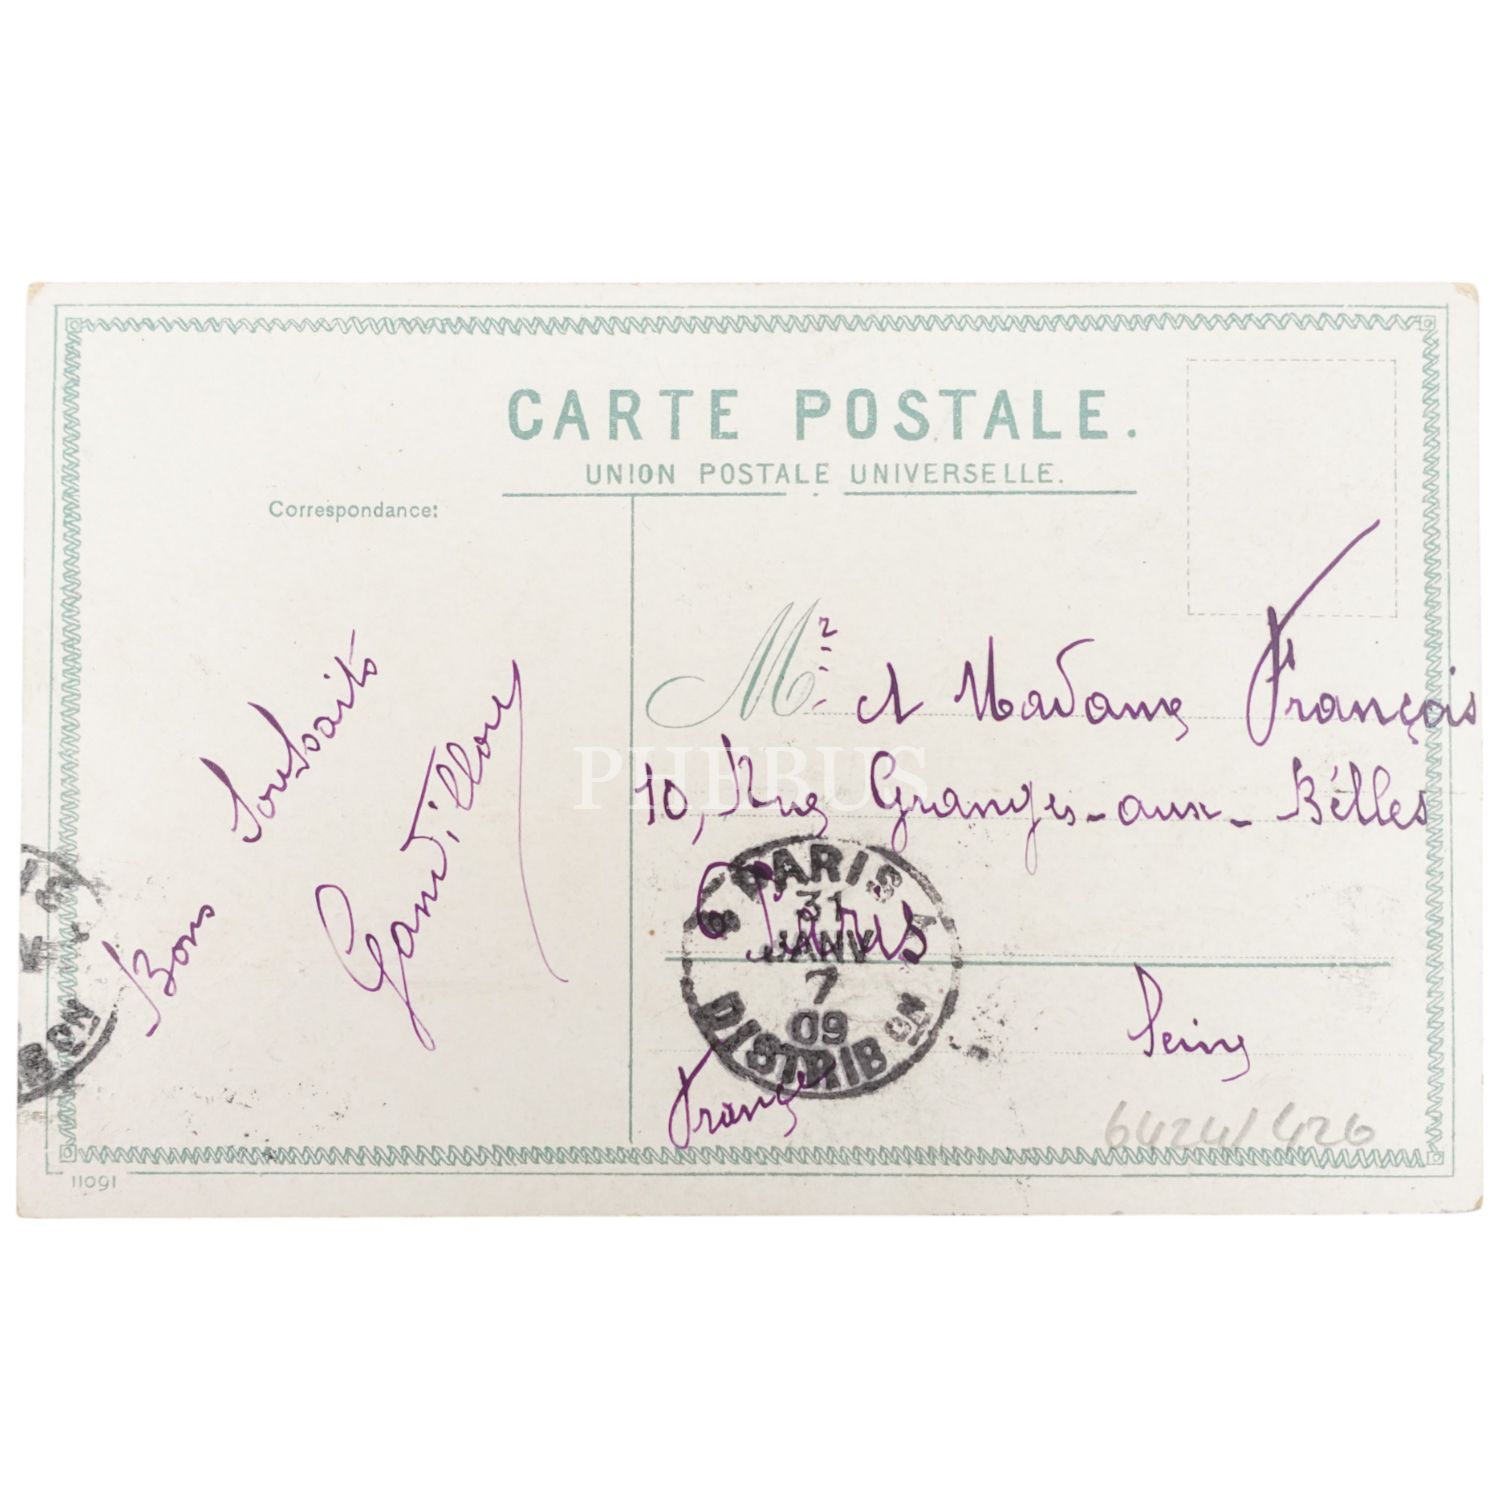 CARTE POSTALE.
UNION POSTALE UNIVERSELLE.
Correspondance:
Bons Souhaits
Gandillon
Mr et Madame François
10, Rue Granges-aux-Bélles
Paris
Seine
France
PARIS
31
JANV
7
09
DISTRIBON
BON
PHEBUS
6424/426
11091